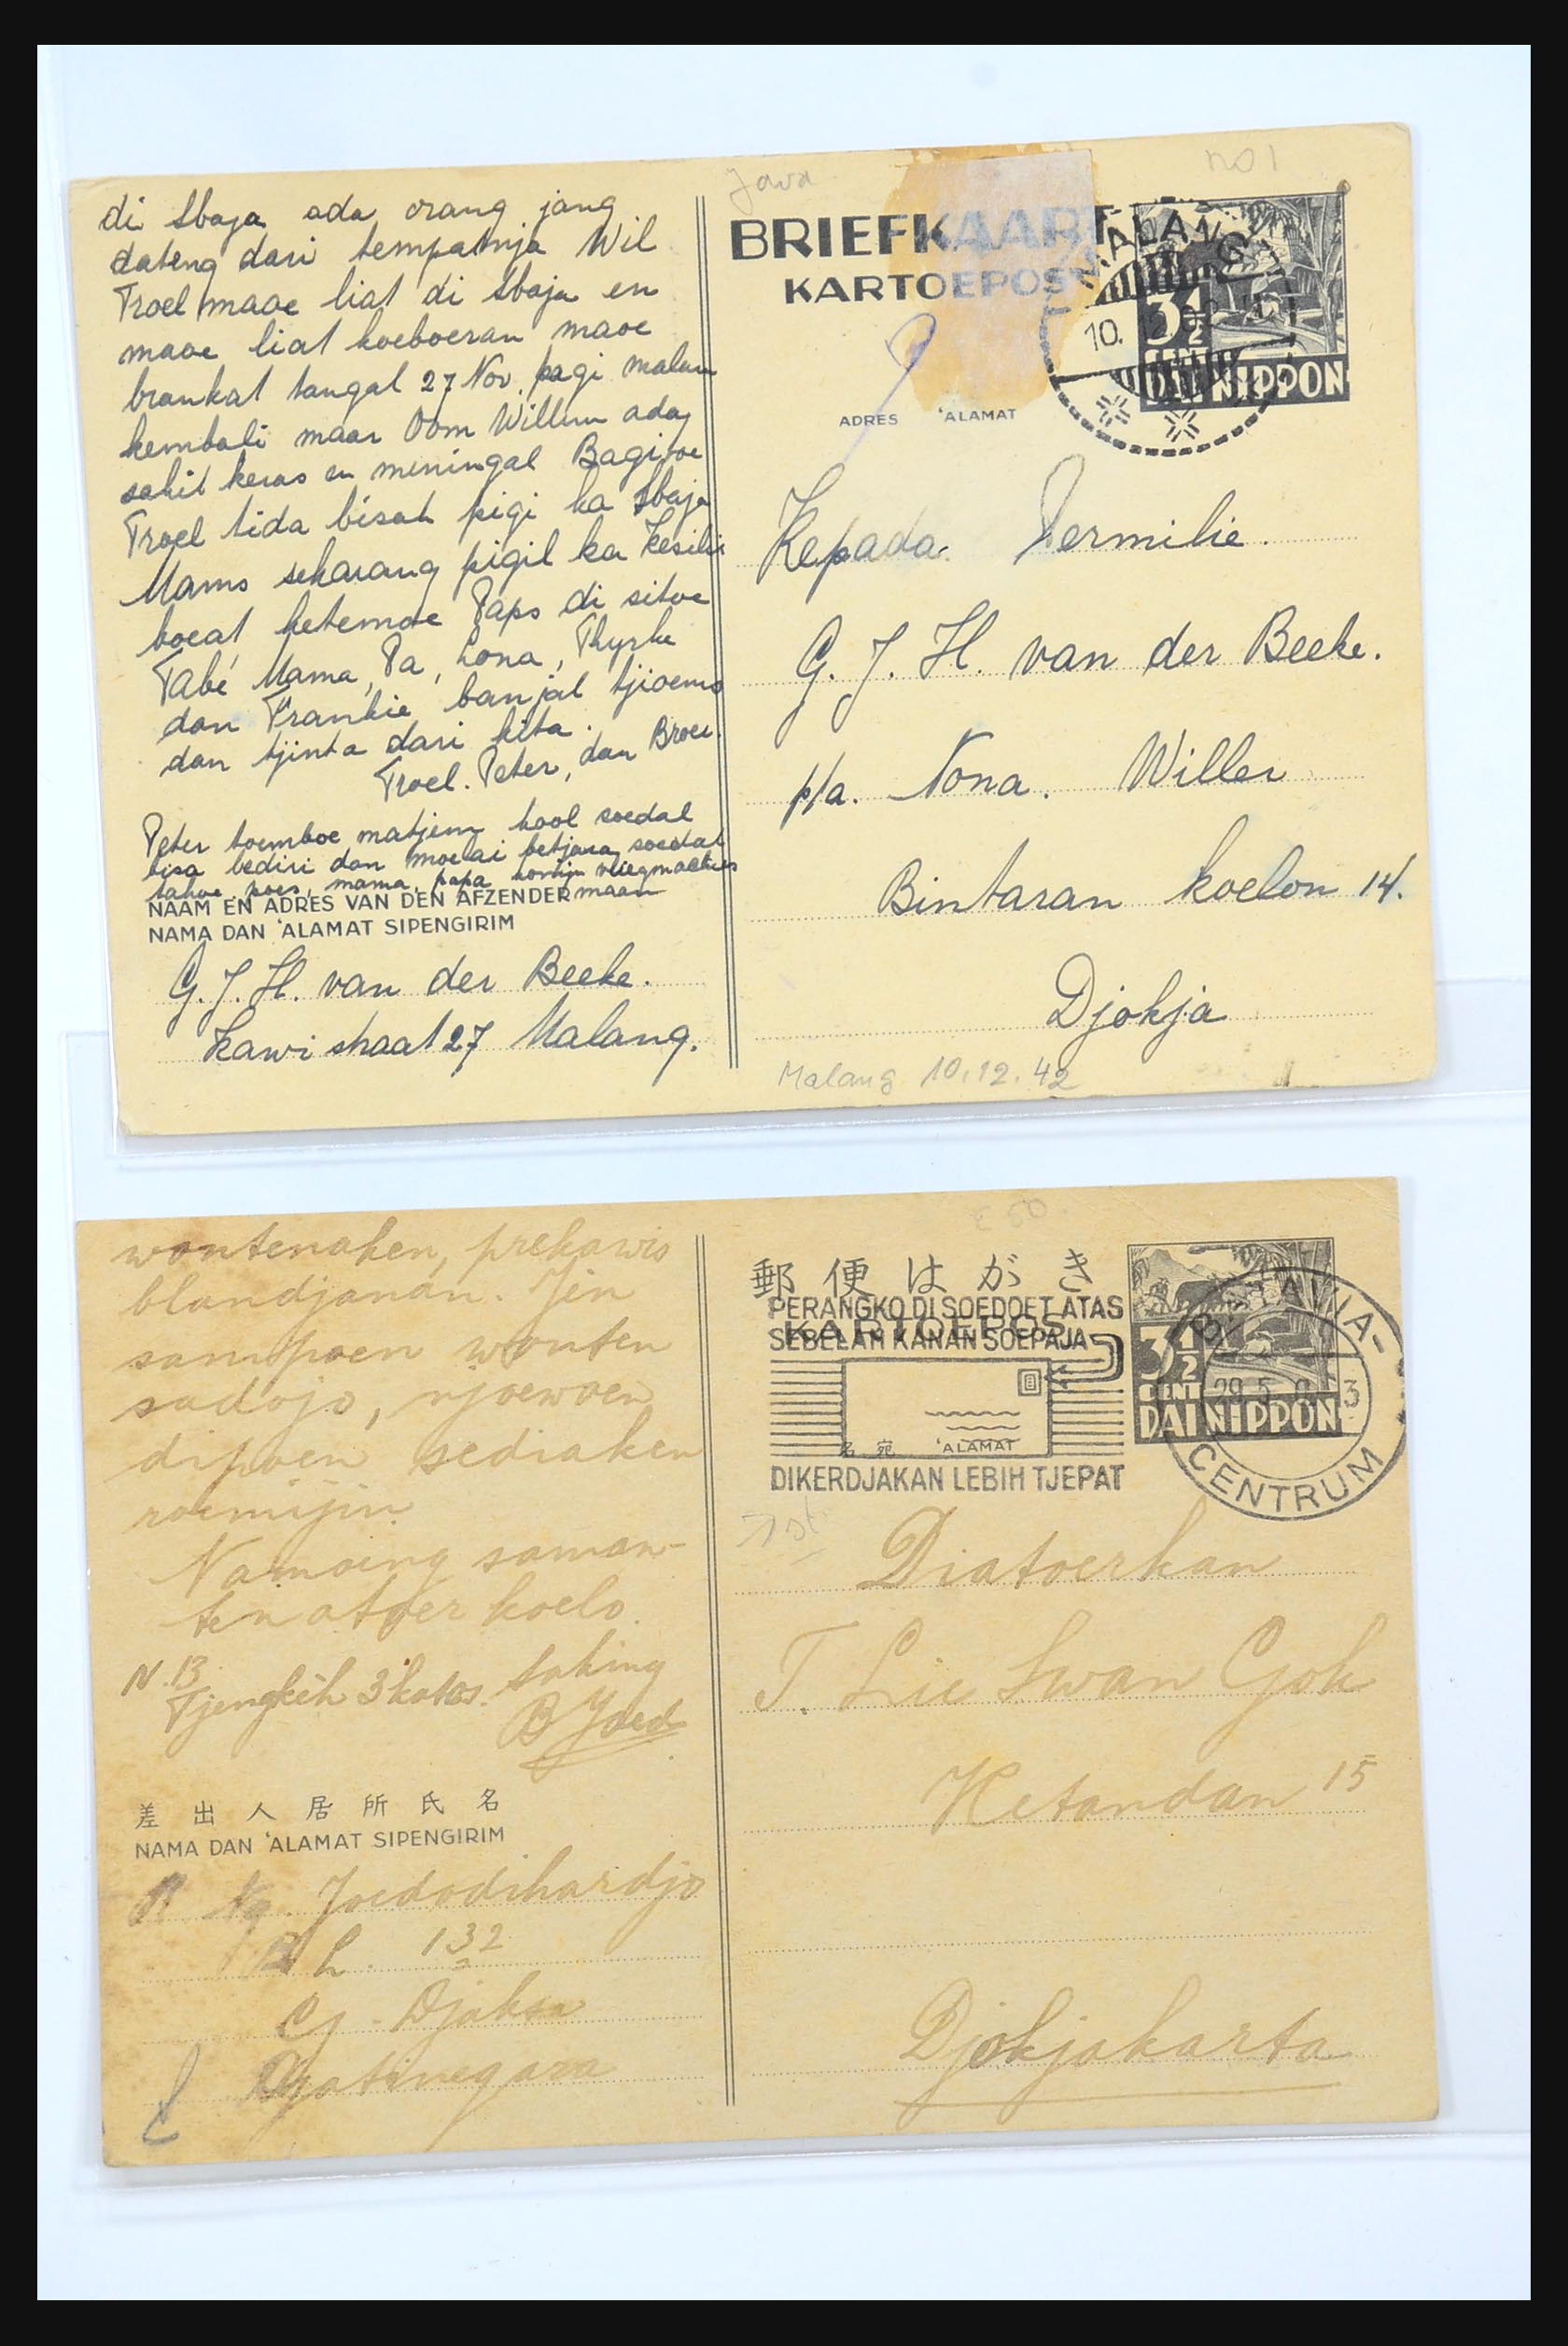 di Sbaja ada orang jang
dateng dari tempatnja Wil
Troel maoe liat di Sbaja en
maoe liat koeboeran maoe
brankat tangal 27 Nov. pagi malam
kembali maar Oom Willem ada
sakit keras en meningal Bagitoe
Troel tida bisah pigi ka Sbaja
Mams sekarang pigil ka Kesilir
boeat ketemoe Paps di sitoe
Tabé Mama, Pa, Lona, Thyrke
dan Frankie banjal tjioems
dan tjinta dari kita.
Troel. Peter, dan Broer.
Peter toemboe matjem kool soedal
bisa bediri dan moelai betjara soedal
tahoe poes, mama, papa
maan
NAAM EN ADRES VAN DEN AFZENDER
NAMA DAN 'ALAMAT SIPENGIRIM
G. J. H. van der Beeke.
Kawistraat 27 Malang.
Java
no 1
BRIEFKAART
KARTOEPOS
MALANG
10. 12
3½
CENT
DAI NIPPON
ADRES 'ALAMAT
Kepada Vermilie.
G. J. H. van der Beeke.
p/a. Nona. Willer
Bintaran koelon 14.
Djokja
Malang 10.12.42
wontenaken, prekawis
blandjanan. Jin
sampoen wonten
sadojo, njoewoen
dipoen sediaken
roemijin.
Namoeng saman-
ten atoer koelo.
N. 13
Tjengkèh 3 katos. saking
B Joed
差出人居所氏名
NAMA DAN 'ALAMAT SIPENGIRIM
R Ng. Joedodihardjo
B L. 132
Gg. Djaksa
Djatinegara
£ 50.
郵便はがき
KARTOEPOS
PERANGKO DISOEDOET ATAS
SEBELAH KANAN SOEPAJA
名宛 'ALAMAT
DIKERDJAKAN LEBIH TJEPAT
3½
CENT
DAI NIPPON
BATAVIA-
29.5. 3
CENTRUM
Diatoerkan
T. Lie Swan Gok
Ketandan 15
Djokjakarta